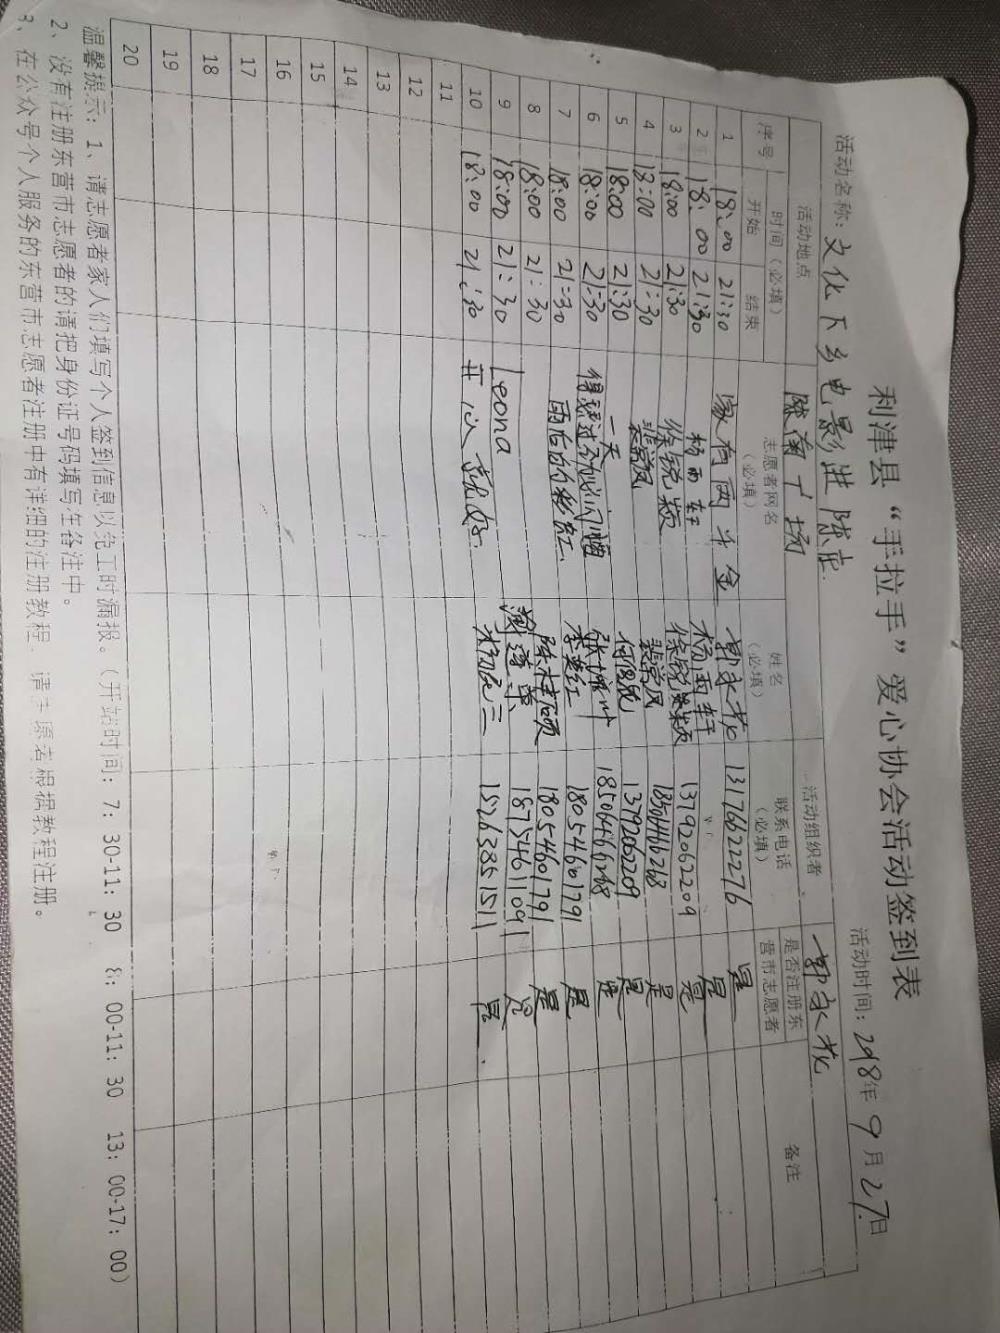 利津县“手拉手”爱心协会活动签到表
活动名称：文化下乡电影进陈庄 活动时间：2018年9月27日
活动地点 陈南广场 活动组织者 郭永花
序号 时间（必填） 志愿者网名（必填） 姓名（必填） 联系电话（必填） 是否注册东营市志愿者 备注
开始 结束
1 18:00 21:30 家有两千金 郭永花 13176622276 是
2 18:00 21:30 杨雨轩 杨雨轩 是
3 18:00 21:30 徐锐颖 徐锐颖 13792062209 是
4 18:00 21:30 裴学风 裴学风 18504466268 是
5 18:00 21:30 一天 13792062209 是
6 18:00 21:30 得过且过何必闷 18506466268 是
7 18:00 21:30 雨后的彩虹 李美红 18054601791 是
8 18:00 21:30 陈梓硕 18054601791 是
9 18:00 21:30 Leona 18754611091 是
10 18:00 21:30 开心就好 杨 15263851511 是
11
12
13
14
15
16
17
18
19
20
温馨提示：1、请志愿者家人们填写个人签到信息以免工时漏报。（开站时间：7：30-11：30 8：00-11：30 13：00-17：00）
2、没有注册东营市志愿者的请把身份证号码填写在备注中。
3、在公众号个人服务的东营市志愿者注册中有详细的注册教程，请志愿者根据教程注册。